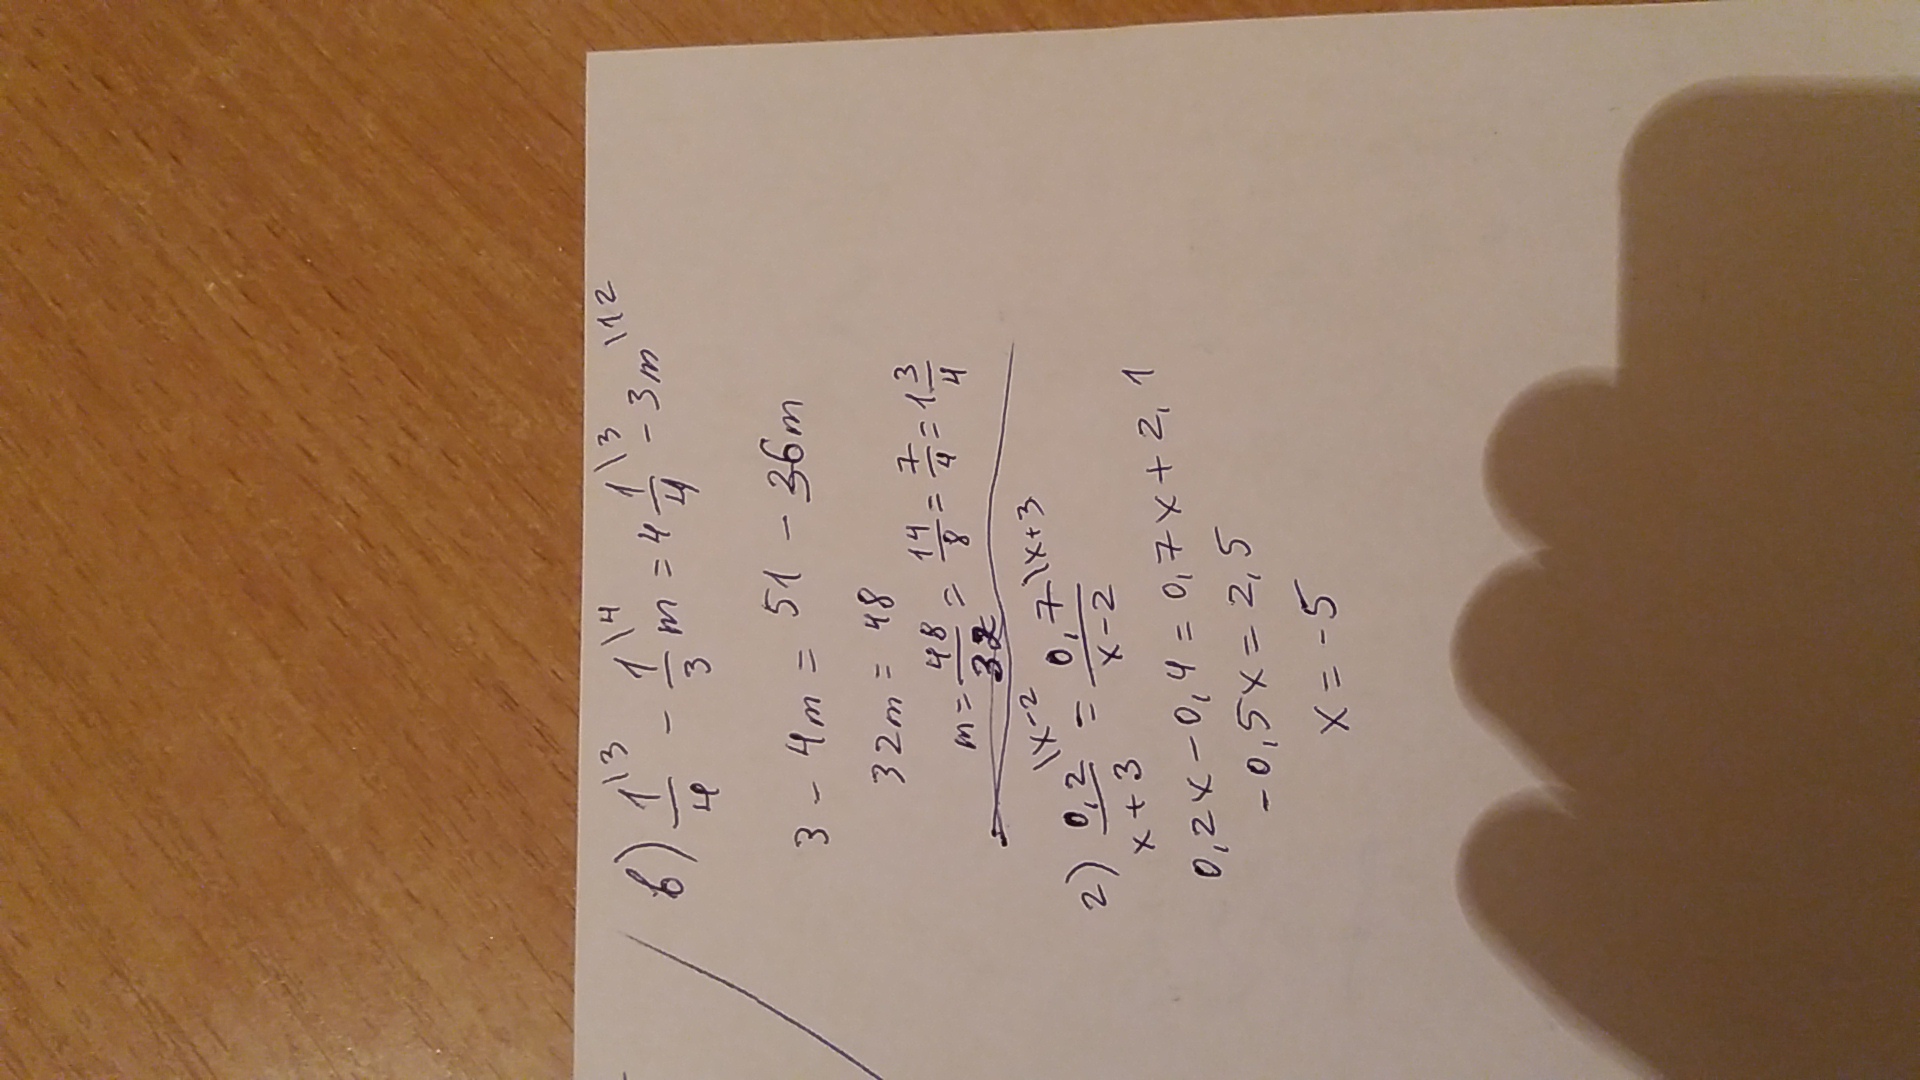 в) 1/4 \3 - 1/3 \4 m = 4 1/4 \3 - 3m \12
3 - 4m = 51 - 36m
32m = 48
m = 48/32 = 14/8 = 7/4 = 1 3/4
г) 0,2/x+3 \x-2 = 0,7/x-2 \x+3
0,2x - 0,4 = 0,7x + 2,1
-0,5x = 2,5
x = -5